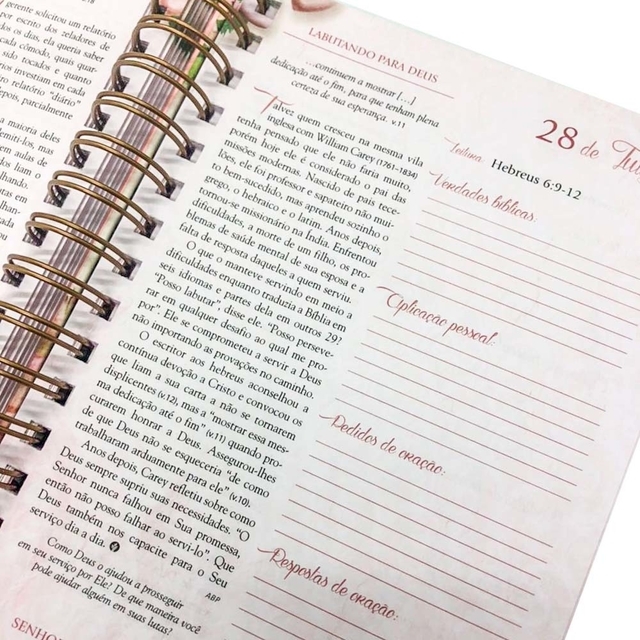 gerente solicitou um relatório
por escrito dos zeladores de
dos os dias, ela queria saber
cada cômodo, quais quar-
sido tocados e quanto
rios investiam em cada
ro relatório "diário"
depois, parcialmente
a maioria deles
demiti-los, mas
em aulas de
dos liam o
lhando.
utas em
lhan-
LABUTANDO PARA DEUS
...continuem a mostrar [...]
dedicação até o fim, para que tenham plena
certeza de sua esperança. v.11
Talvez quem cresceu na mesma vila
inglesa com William Carey (1761-1834)
tenha pensado que ele não faria muito,
porém hoje ele é considerado o pai das
missões modernas. Nascido de pais tece-
lões, ele foi professor e sapateiro não mui-
to bem-sucedido, mas aprendeu sozinho o
grego, o hebraico e o latim. Anos depois,
tornou-se missionário na Índia. Enfrentou
dificuldades, a morte de um filho, os pro-
blemas de saúde mental de sua esposa e a
falta de resposta daqueles a quem serviu.
O que o manteve servindo em meio a
dificuldades enquanto traduzia a Bíblia em
seis idiomas e partes dela em outros 29?
"Posso labutar", disse ele. "Posso perseve-
rar em qualquer desafio ao qual me pro-
por". Ele se comprometeu a servir a Deus
não importando as provações no caminho.
O escritor aos hebreus aconselhou a
contínua devoção a Cristo e convocou os
que liam a sua carta a não se tornarem
displicentes (v.12), mas a "mostrar essa mes-
ma dedicação até o fim" (v.11) quando pro-
curarem honrar a Deus. Assegurou-lhes
de que Deus não se esqueceria "de como
trabalharam arduamente para ele" (v.10).
Anos depois, Carey refletiu sobre como
Deus sempre supriu suas necessidades. "O
Senhor nunca falhou em Sua promessa,
então não posso falhar ao servi-lo". Que
Deus também nos capacite para o Seu
serviço dia a dia.
ABP
Como Deus o ajudou a prosseguir
em seu serviço por Ele? De que maneira você
pode ajudar alguém em suas lutas?
28 de
Leitura: Hebreus 6:9-12
Verdades bíblicas:
Aplicação pessoal:
Pedidos de oração:
Respostas de oração: